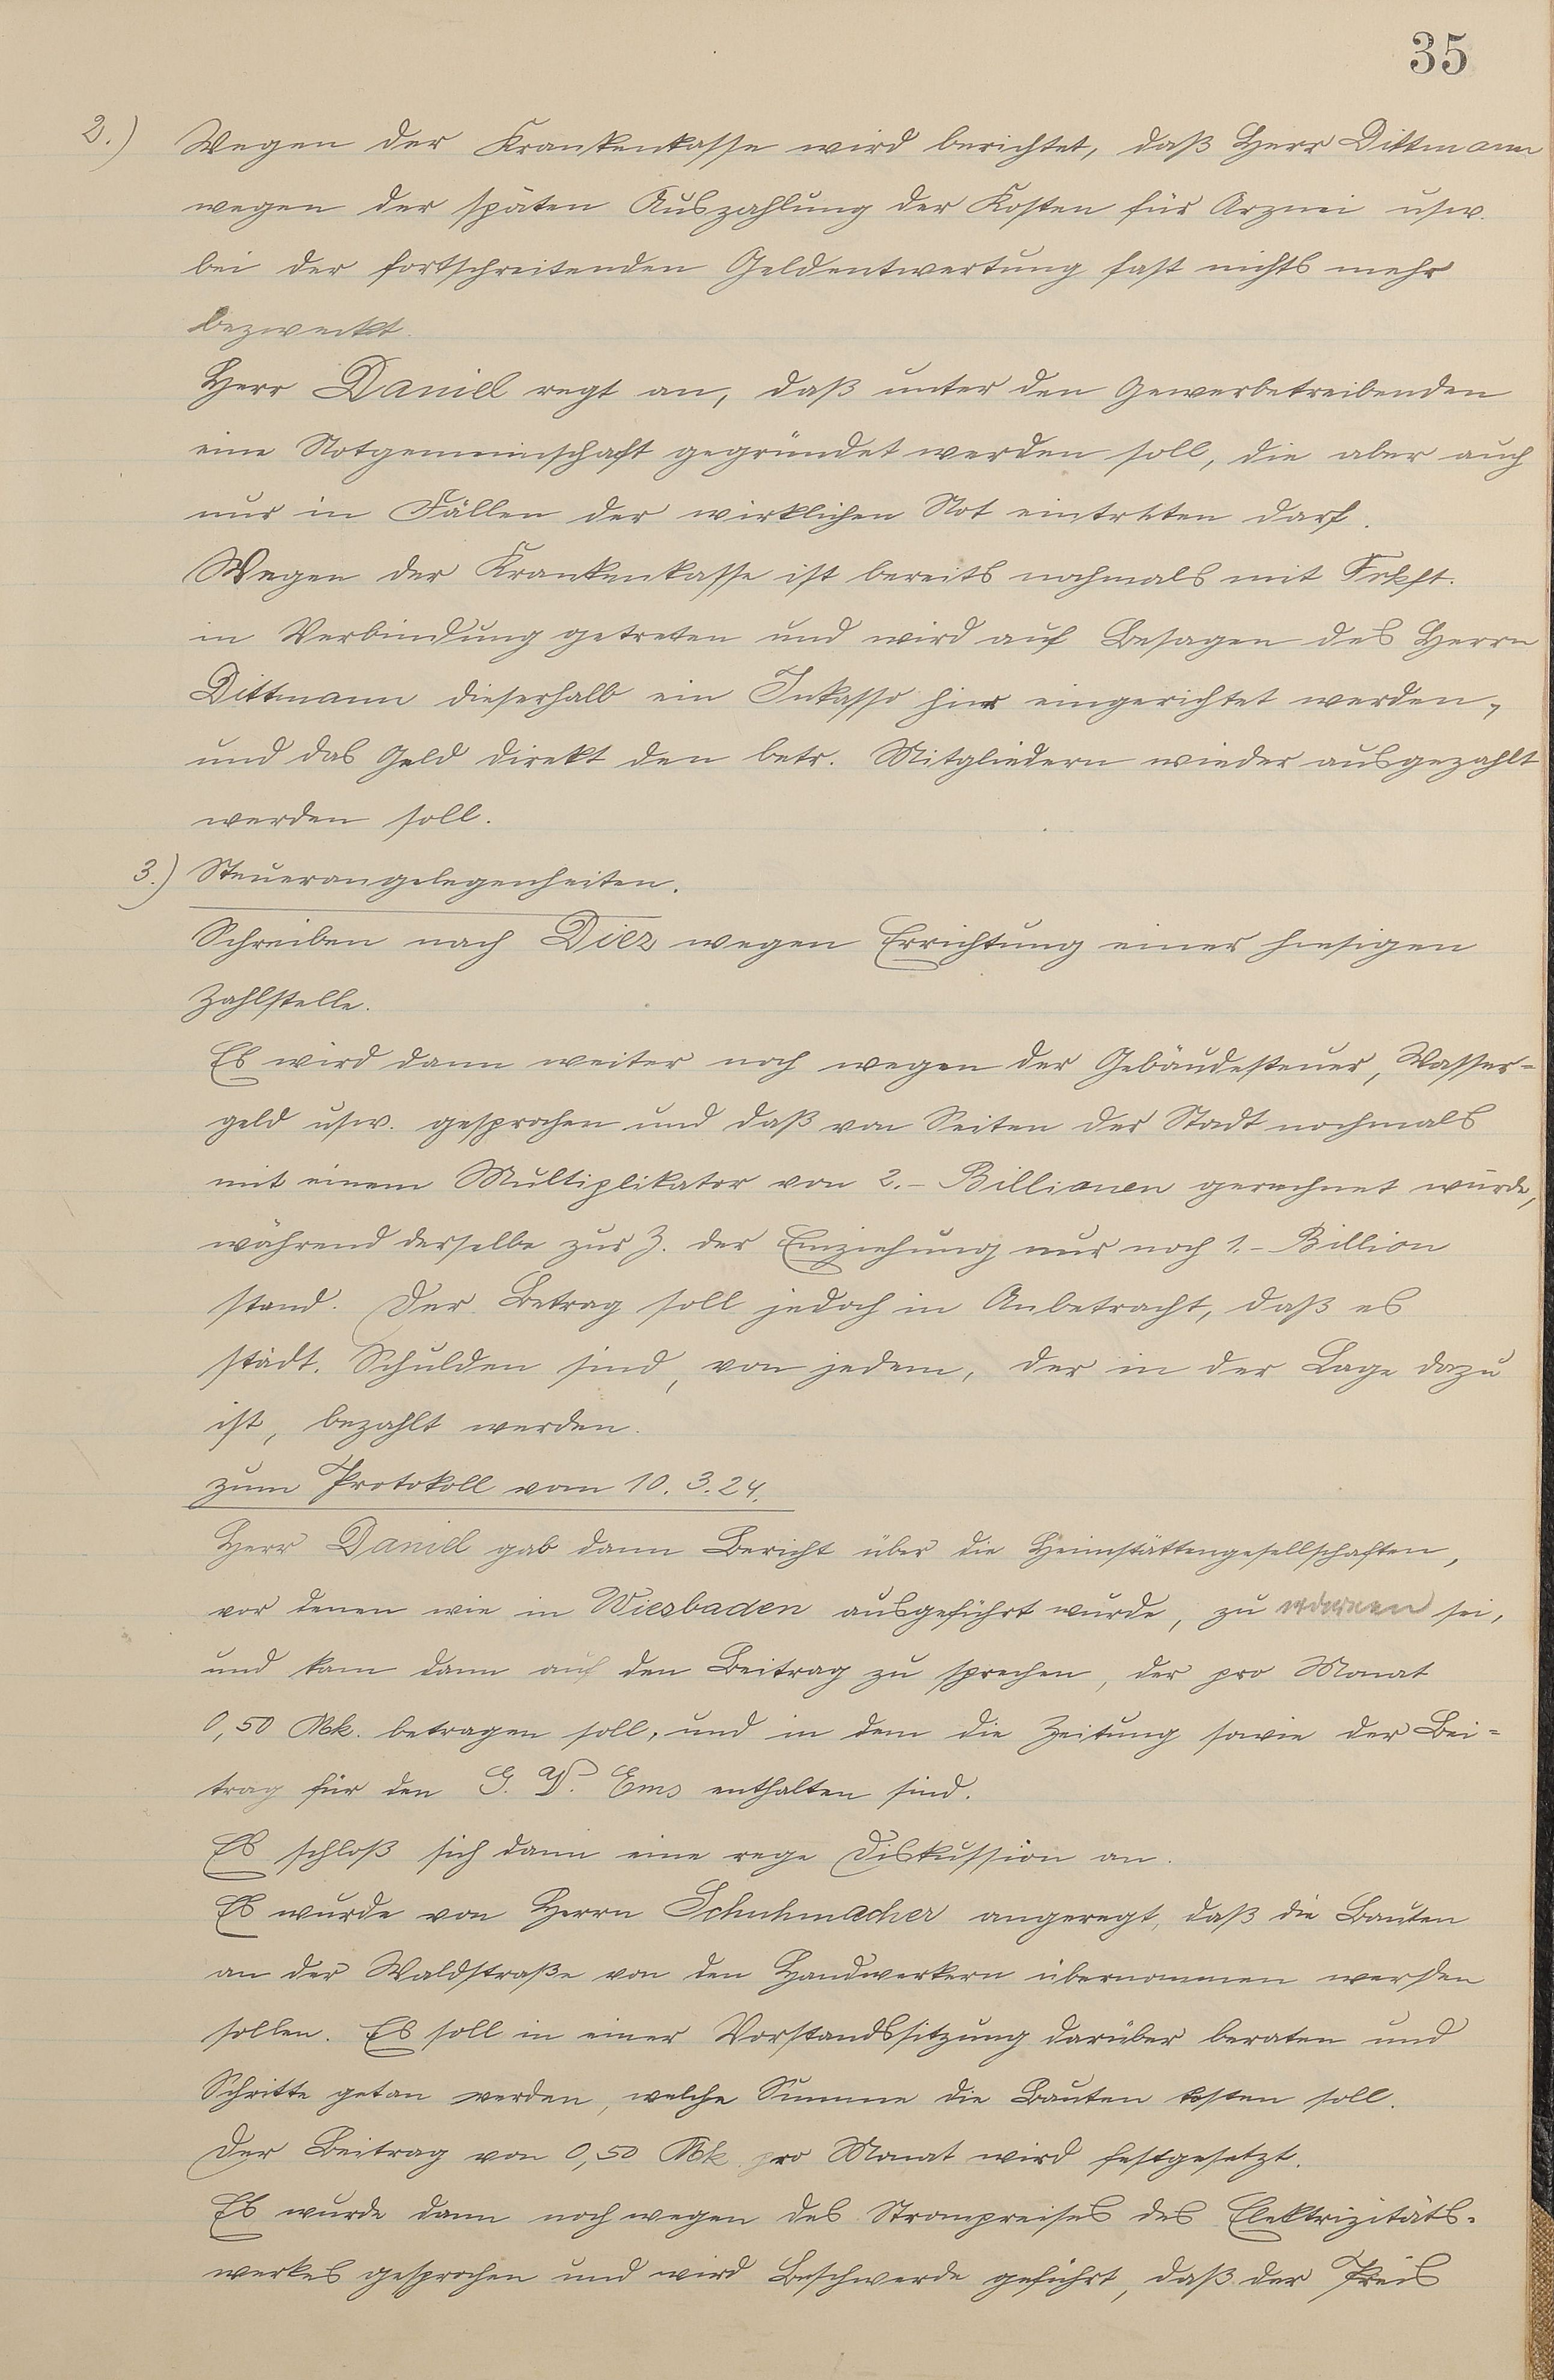 35
2.) Wegen der Krankenkasse wird berichtet, daß Herr Dittmann
wegen der späten Auszahlung der Kosten für Arznei usw.
bei der fortschreitenden Geldentwertung fast nichts mehr
bezweckt.
Herr Daniel regt an, daß unter den Gewerbetreibenden
eine Notgemeinschaft gegründet werden soll, die aber auch
nur in Fällen der wirklichen Not eintreten darf.
Wegen der Krankenkasse ist bereits nochmals mit Frkft.
in Verbindung getreten und wird auf Besagen des Herrn
Dittmann dieserhalb ein Inkasso hier eingerichtet werden,
und das Geld direkt den betr. Mitgliedern wieder ausgezahlt
werden soll.
3.) Steuerangelegenheiten.
Schreiben nach Diez wegen Errichtung einer hiesigen
Zahlstelle.
Es wird dann weiter noch wegen der Gebäudesteuer, Wasser=
geld usw. gesprochen und daß von Seiten der Stadt nochmals
mit einem Multiplikator von 2.- Billionen gerechnet würde,
während derselbe zur Z. der Einziehung nur noch 1.- Billion
stand. Der Betrag soll jedoch in Anbetracht, daß es
städt. Schulden sind, von jedem, der in der Lage dazu
ist, bezahlt werden.
zum Protokoll vom 10.3.24.
Herr Daniel gab dann Bericht über die Heimstättengesellschaften,
vor denen wie in Wiesbaden ausgeführt wurde, zu sei,
und kam dann auf den Beitrag zu sprechen, der pro Monat
0,50 Mk. betragen soll, und in dem die Zeitung sowie der Bei=
trag für den G. V. Ems enthalten sind.
Es schloß sich dann eine rege Diskussion an.
Es wurde von Herrn Schuhmacher angeregt, daß die Bauten
an der Waldstraße von den Handwerkern übernommen werden
sollen. Es soll in einer Vorstandssitzung darüber beraten und
Schritte getan werden, welche Summe die Bauten kosten soll.
Der Beitrag von 0,50 Mk. pro Monat wird festgesetzt.
Es wurde dann noch wegen des Strompreises des Elektrizitäts=
werkes gesprochen und wird Beschwerde geführt, daß der Preis